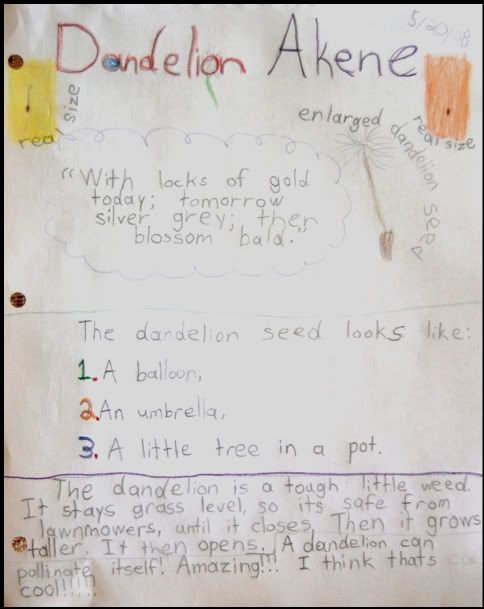 5/20/08
Dandelion Akene
real size
real size
enlarged dandelion seed
"With locks of gold
today; tomorrow
silver grey; then
blossom bald."
The dandelion seed looks like:
1. A balloon,
2. An umbrella,
3. A little tree in a pot.
The dandelion is a tough little weed.
It stays grass level, so its safe from
lawnmowers, until it closes. Then it grows
taller. It then opens. A dandelion can
pollinate itself! Amazing!!! I think thats
cool!!!!!